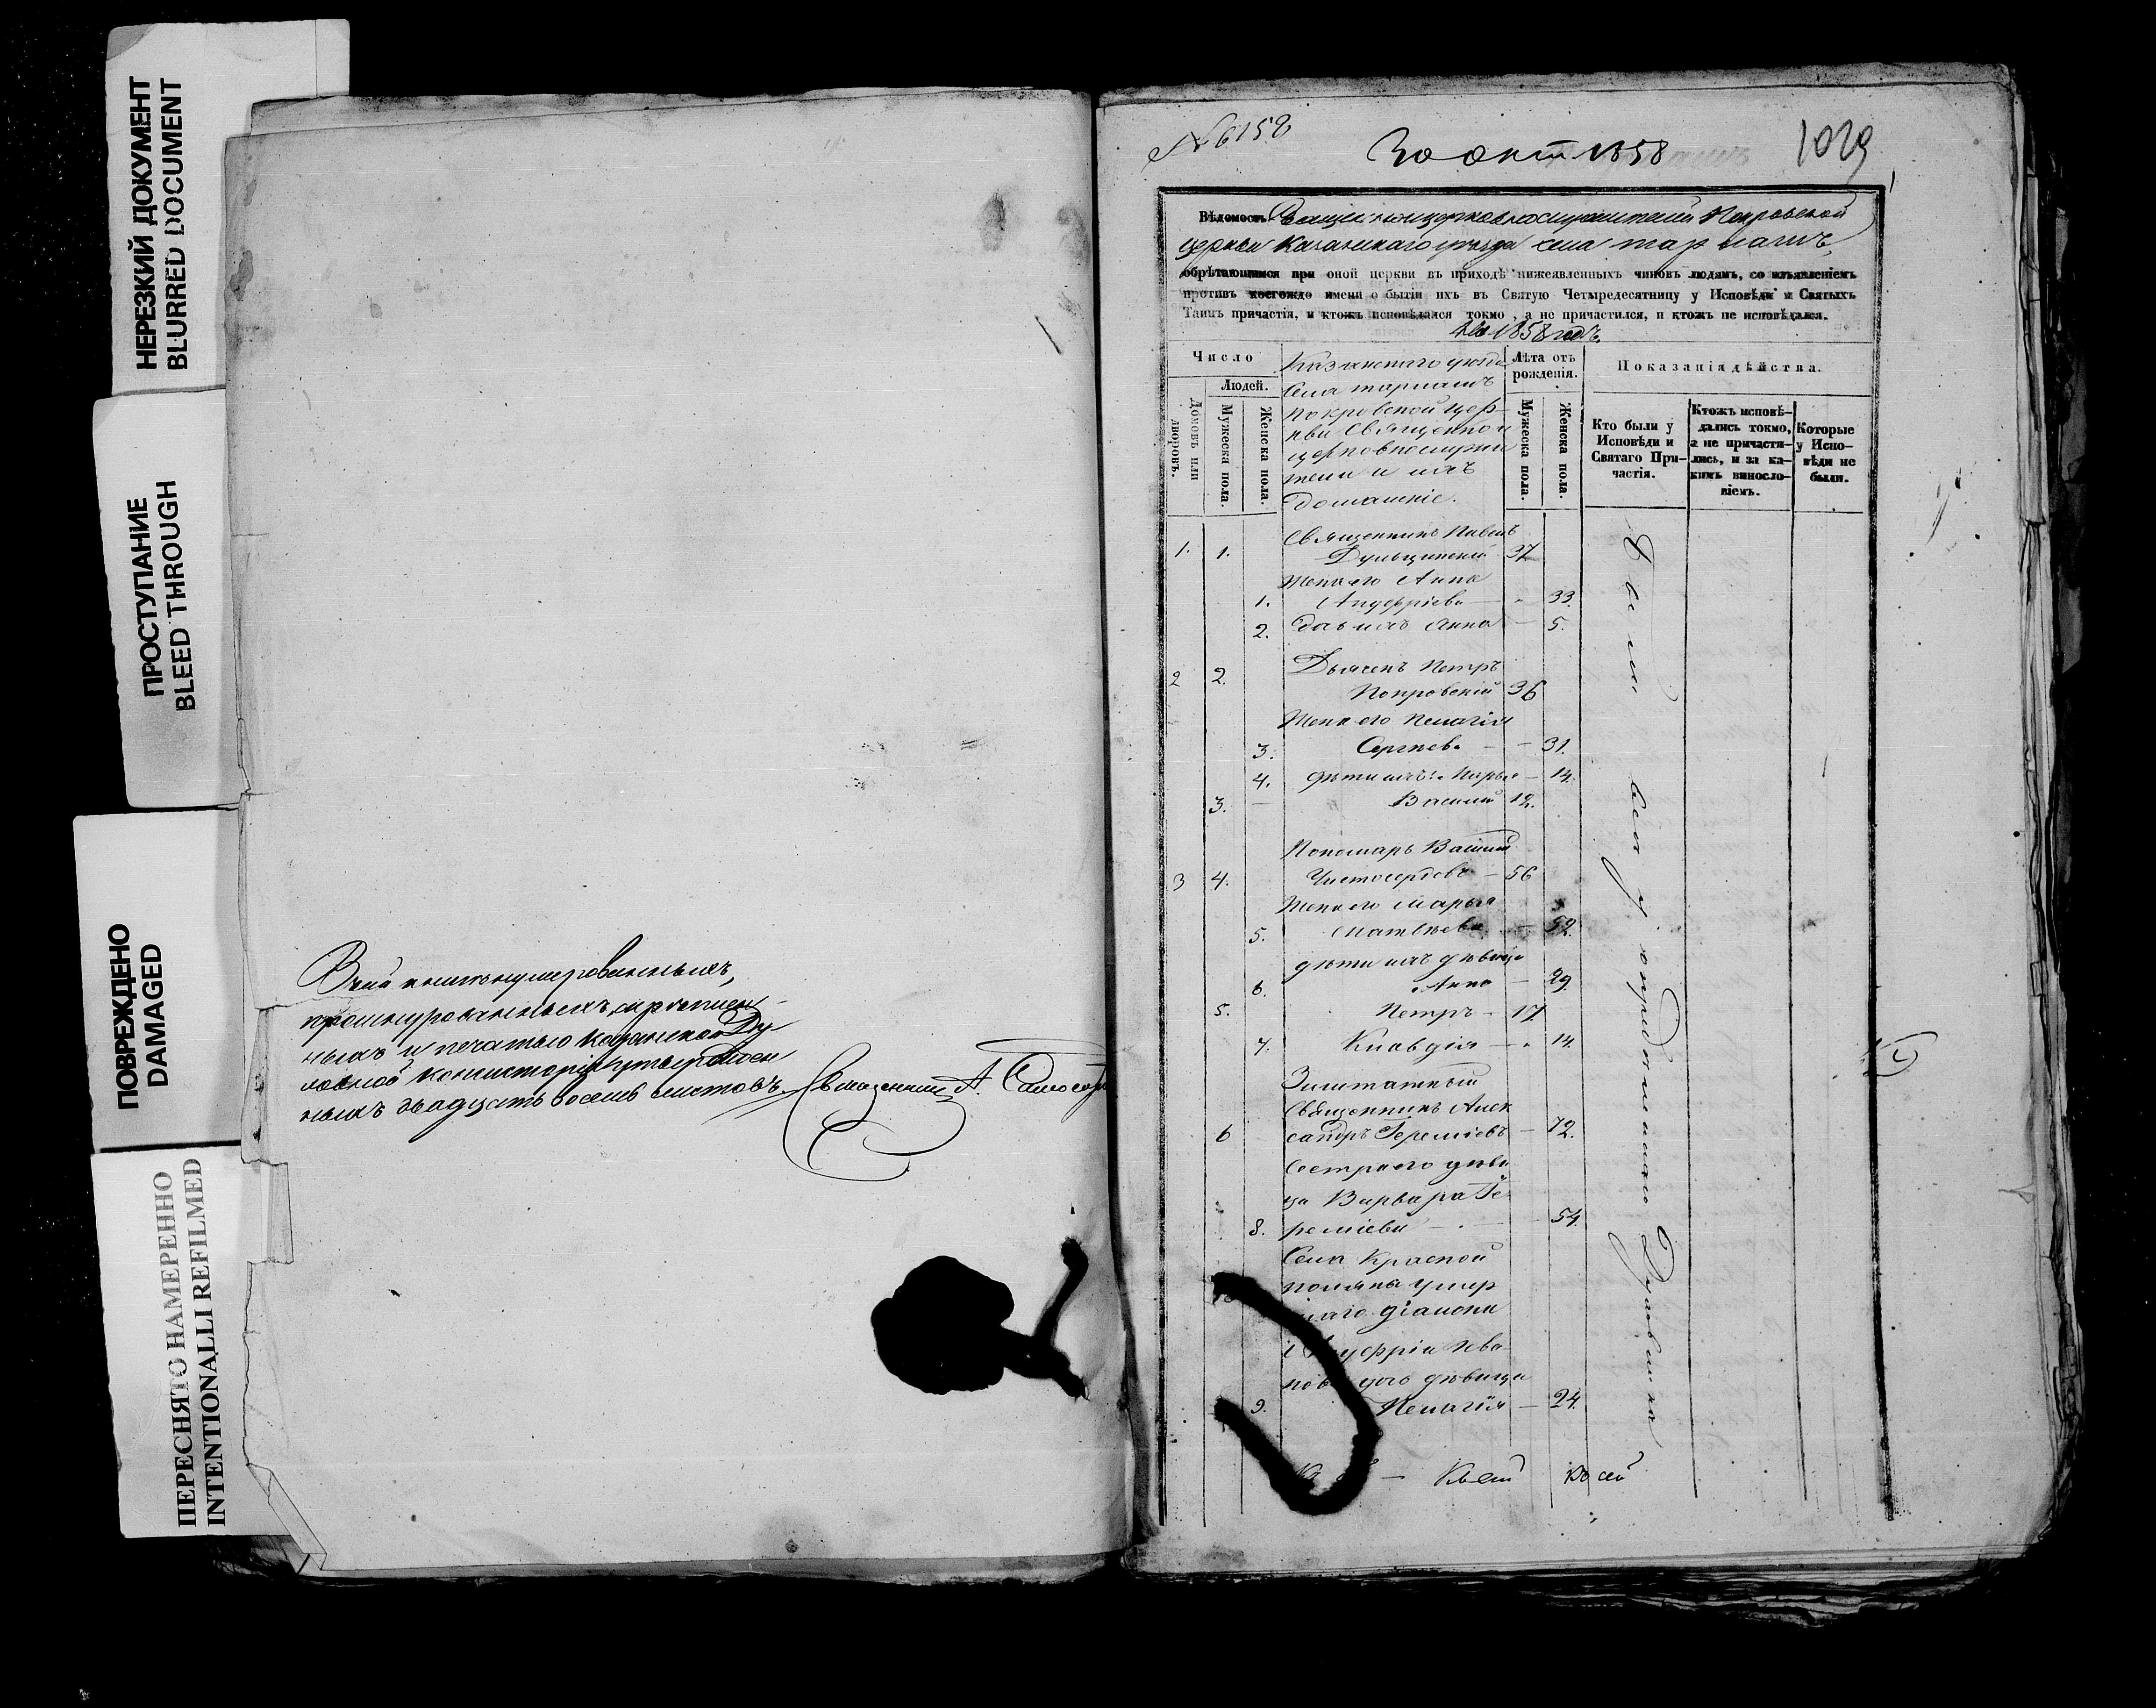 НЕРЕЗКИЙ ДОКУМЕНТ
BLURRED DOCUMENT
ПРОСТУПАНИЕ
BLEED THROUGH
ПОВРЕЖДЕНО
DAMAGED
ПЕРЕСНЯТО НАМЕРЕННО
INTENTIONALLI REFILMED
нумерованныхъ,
прошнурованныхъ, скрѣплен-
ныхъ и печатью Казанской Ду-
ховной Консисторіи утвержден
ныхъ двадцать восемь листовъ. Священникъ А.
№ 6158
30 окт 1858
1029
Вѣдомость Священноцерковнослужителей Покровской
церкви Казанскаго уѣзда села
обрѣтающимся при оной церкви въ приходѣ нижеявленныхъ чиновъ людямъ, со изъявленіемъ
противъ коегождо имени о бытіи ихъ въ Святую Четыредесятницу у Исповѣди и Святыхъ
Таинъ причастія, и ктожъ исповѣдался токмо, а не причастился, и ктожъ не исповѣдался.
На 1858 годъ.
Число
Людей.
Домовъ или дворовъ.
Мужеска пола.
Женска пола.
Казанскаго уѣзда
Села
Покровской цер-
кви Священно и
церковнослужи
тели и ихъ
домашніе.
Лѣта отъ
рожденія.
Мужеска пола.
Женска пола.
Показанія дѣйства.
Кто были у
Исповѣди и
Святаго При-
частія.
Ктожъ исповѣ-
дались токмо,
а не причасти-
лись, и за ка-
кимъ винсло-
віемъ.
Которые
у Испо-
вѣди не
были.
Священникъ Павелъ
1. 1. 37
Жена его Анна
1. Ануфріева 33.
2. дочь ихъ Анна 5.
Дьячекъ Петръ
2 2. Покровскій 36
Жена его Пелагія
3. Сергѣева 31.
4. дѣти ихъ: Марья 14.
3. Василій 12.
Пономарь Василій
3 4. Чистосердовъ 56
Жена его Марья
5. Матвѣева 52.
дѣти ихъ дѣвица
6. Анна 29.
5. Петръ 17
7. Клавдія 14.
Заштатный
Священникъ Алек
6 сандръ Іереміевъ 72.
Сестра его дѣви
ца Варвара Іе-
8. реміева 54.
Села Красной
поляны умер
шаго діакона
Ануфрія Ива
нова дочь дѣвица
9. Пелагія 24.